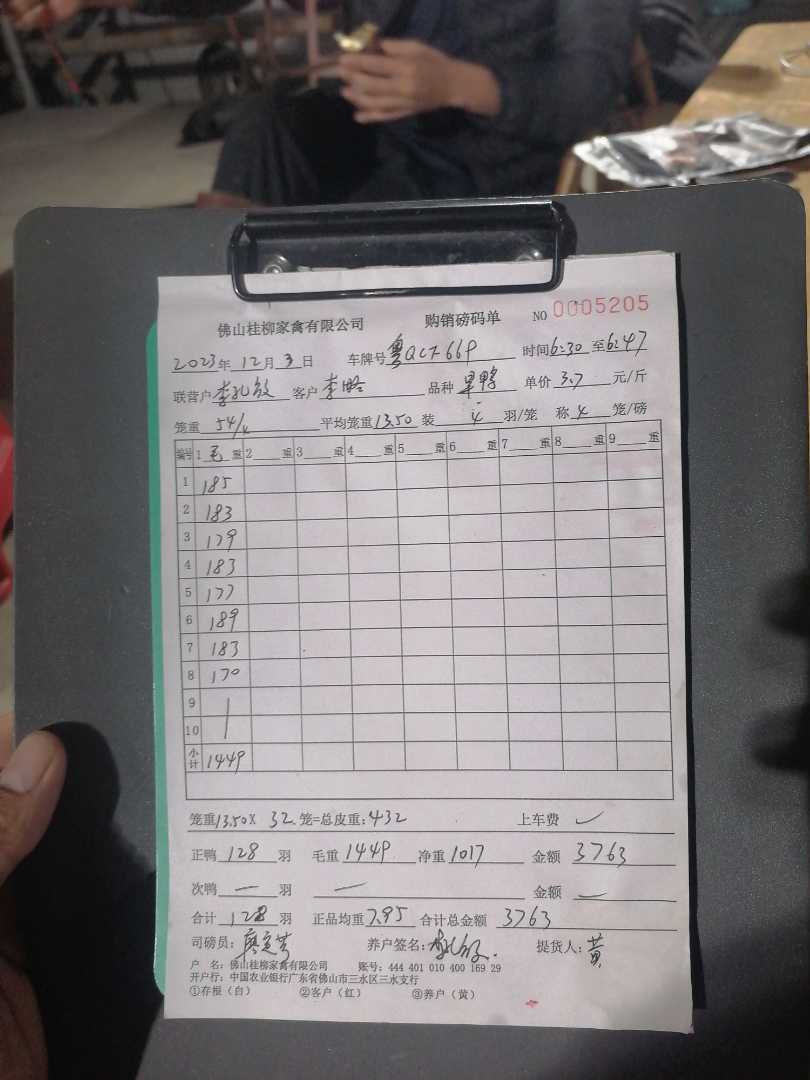 佛山桂柳家禽有限公司 购销磅码单 NO 0005205
2023年12月3日 车牌号 粤QCZ669 时间6:30至6:47
联营户 李孔 客户 李 品种 鸭 单价 3.7 元/斤
笼重 54/4 平均笼重13.50 装 4 羽/笼 称 4 笼/磅
编号 1 毛 重 2 重 3 重 4 重 5 重 6 重 7 重 8 重 9 重
1 185
2 183
3 179
4 183
5 177
6 189
7 183
8 170
9
10
小计 1449
笼重13.50× 32 笼=总皮重:432 上车费
正鸭 128 羽 毛重 1449 净重 1017 金额 3763
次鸭 — 羽 — 金额
合计 128 羽 正品均重 7.95 合计总金额 3763
司磅员: 廖 养户签名: 提货人: 黄
户 名: 佛山桂柳家禽有限公司 账号: 444 401 010 400 169 29
开户行: 中国农业银行广东省佛山市三水区三水支行
①存根(白) ②客户(红) ③养户(黄)